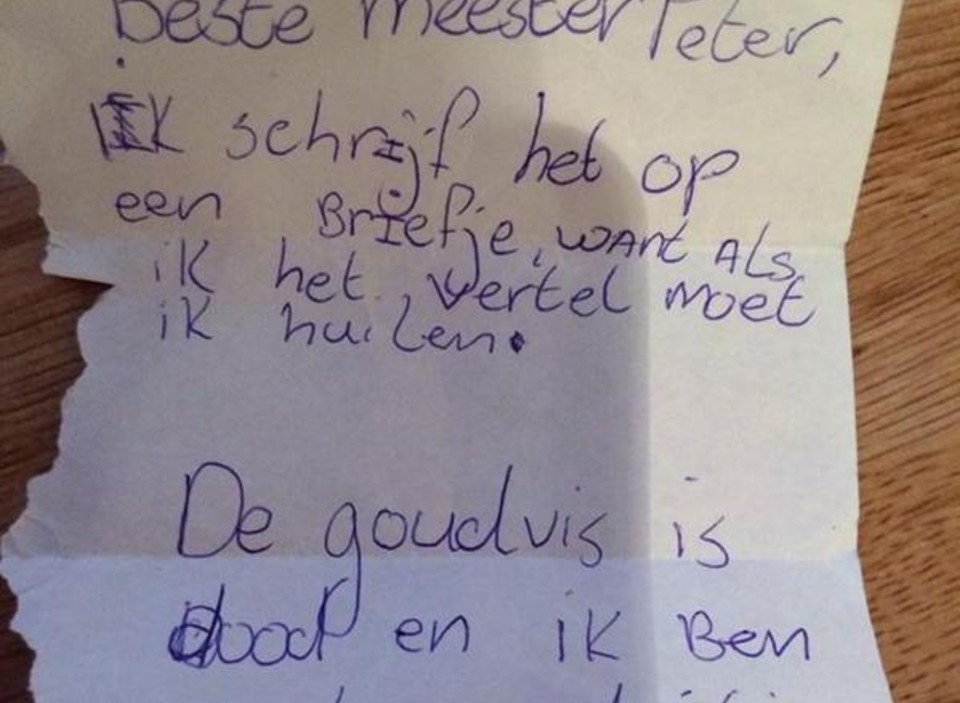 Beste meester Peter,
Ik schrijf het op
een Briefje, want Als
ik het, vertel moet
ik huilen.
De goudvis is
dood en ik Ben